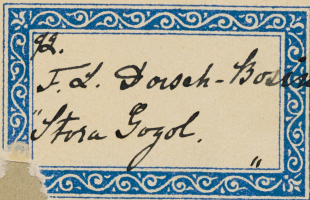 92.
F. L. Dorsch-
"Stora Gogol."